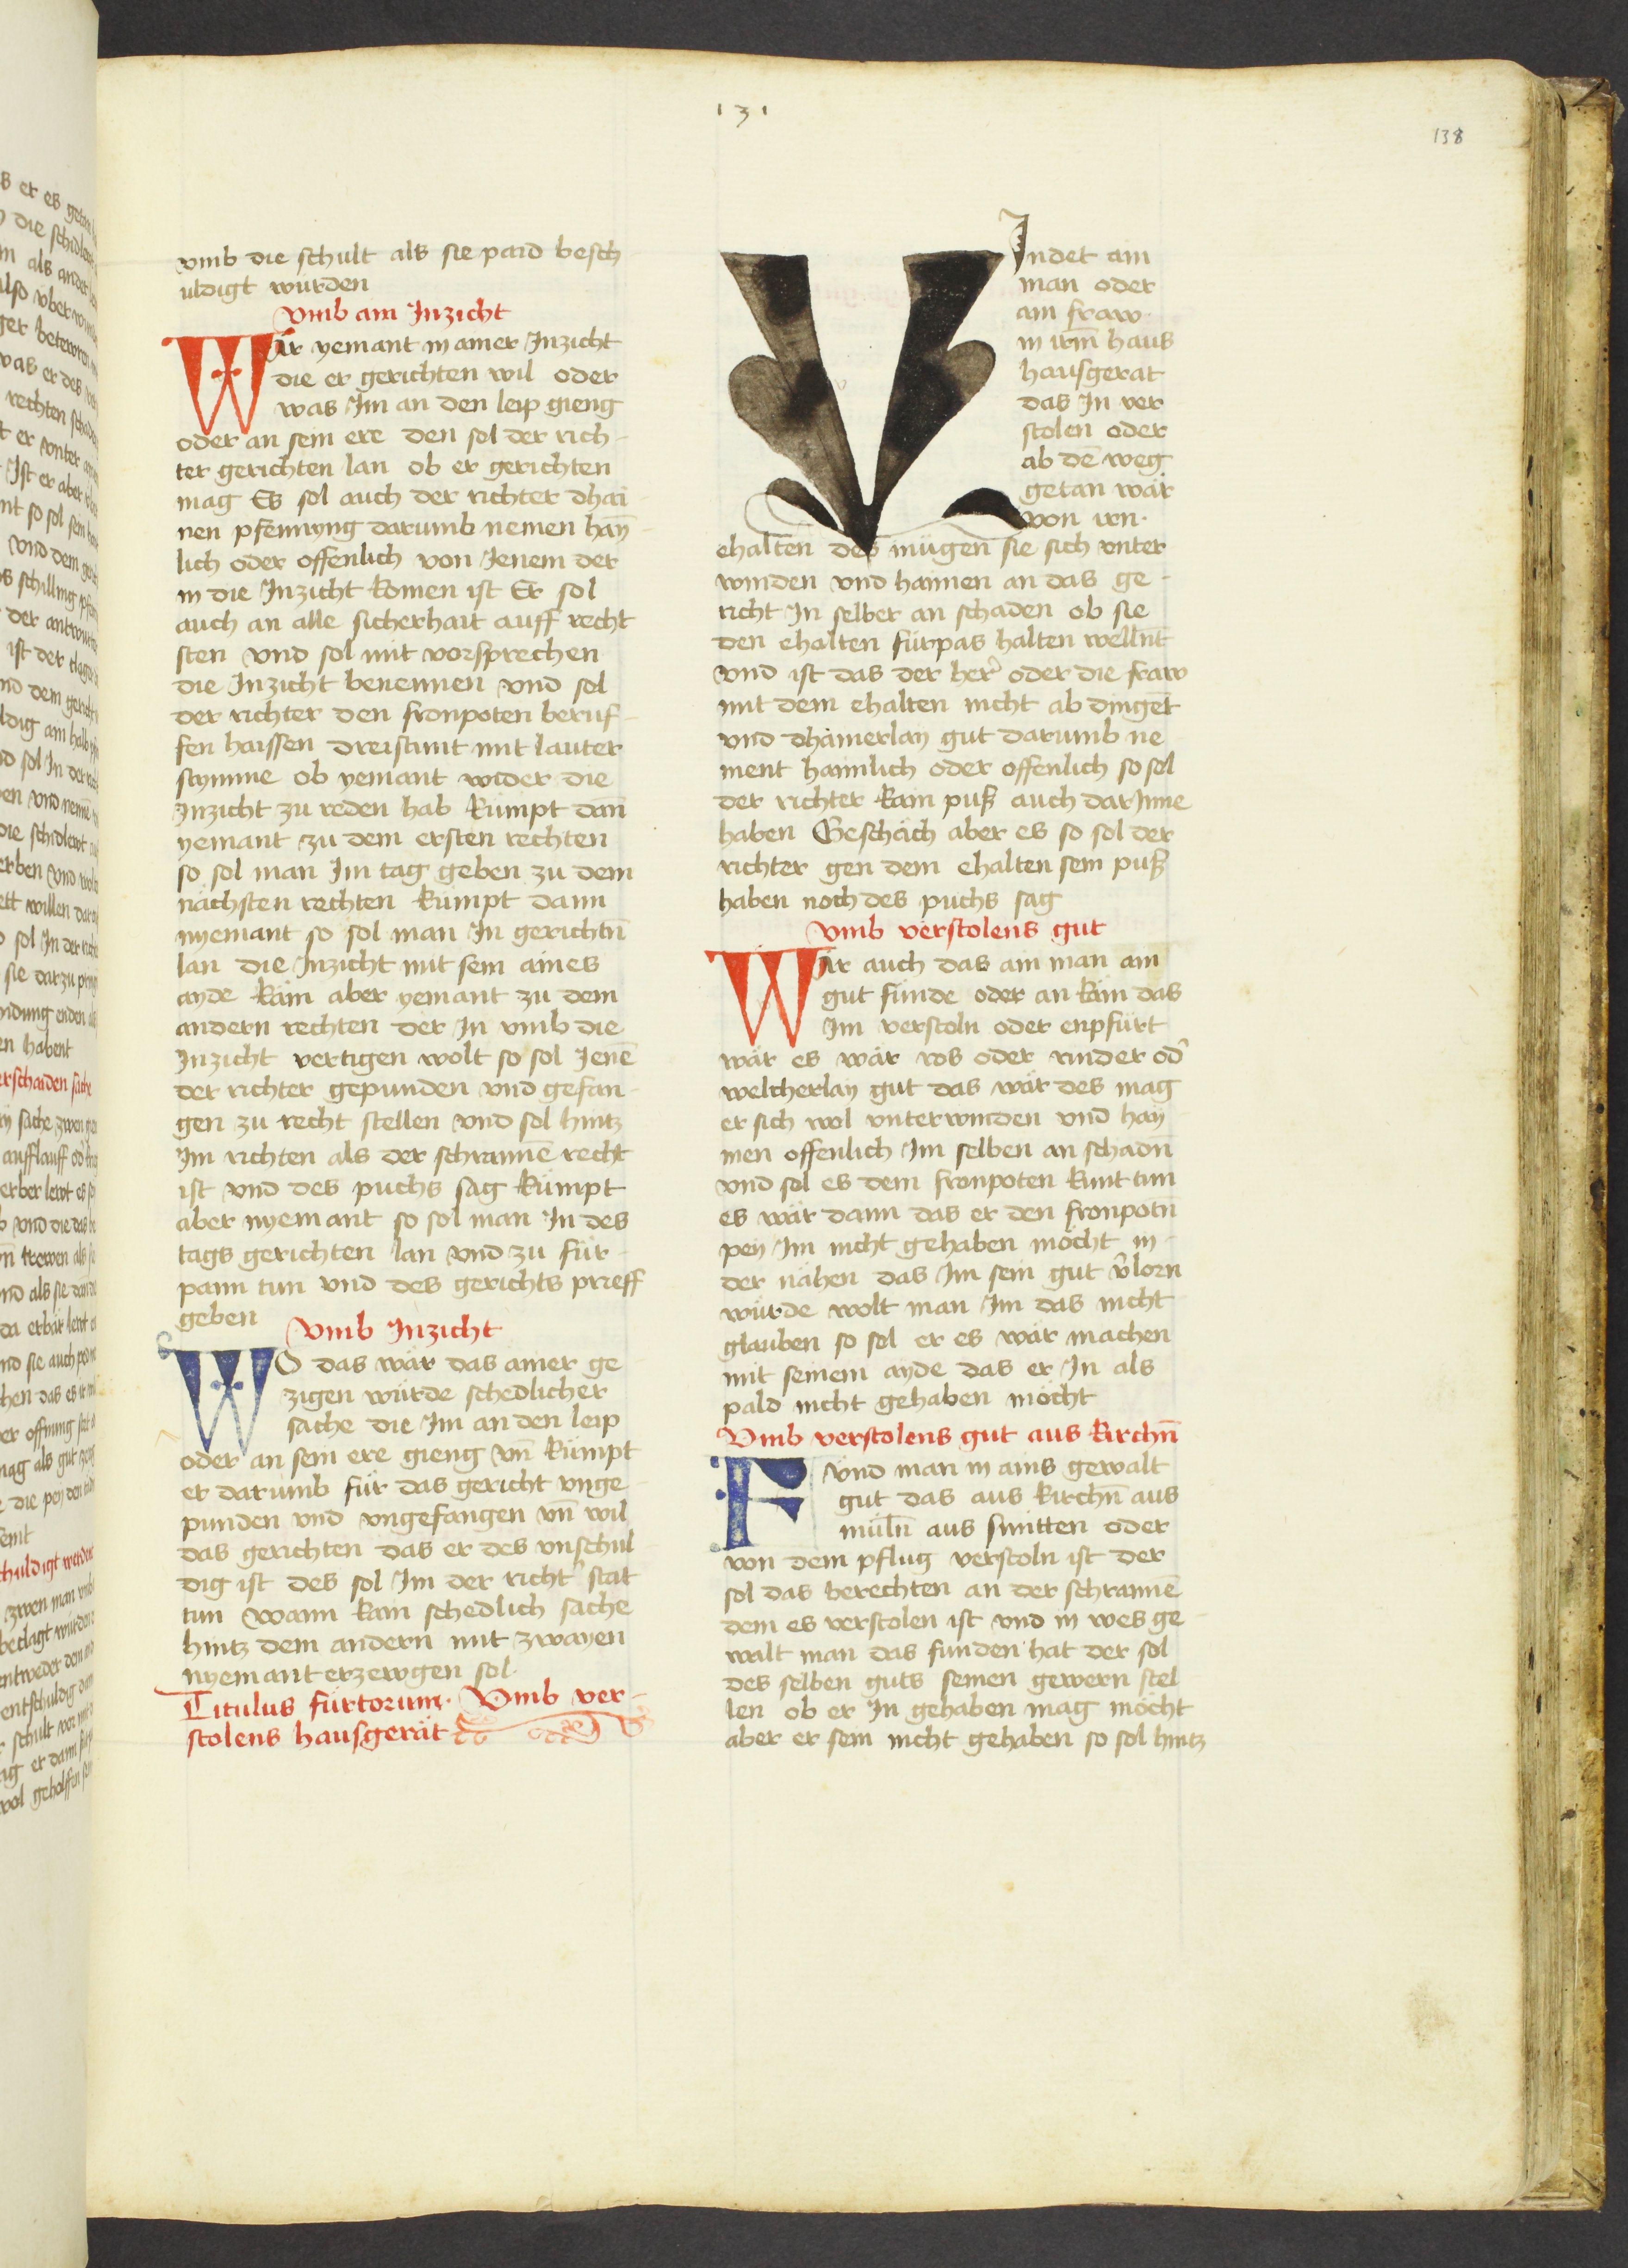 131
138
vmb die schult als sie paid besch
uldigt wurden
Vmb ain Inzicht
Wär yemant in ainer Inzicht
die er gerichten wil oder
was Im an den leip gieng
oder an sein ere den sol der rich
ter gerichten lan ob er gerichten
mag Es sol auch der richter dhai
nen pfennyng darumb nemen hay̅
lich oder offenlich von Jenem der
in die Inzicht komen ist Er sol
auch an alle sicherhait auff recht
sten vnd sol mit vorsprechen
die Inzicht benennen vnd sol
der richter den fronpoten beruf
fen haissen dreistunt mit lauter
stymme ob yemant wider die
Inzicht zu reden hab kümpt dan̅
yemant zu dem ersten rechten
so sol man Im tag geben zu dem
nächsten rechten kümpt dann
nyemant so sol man In gerichtn̅
lan die Inzicht mit sein aines
ayde käm aber yemant zu dem
andern rechten der In vmb die
Inzicht vertigen wolt so sol Jene̅
der richter gepunden vnd gefan
gen zu recht stellen vnd sol hintz
Im richten als der schranne̅ recht
ist vnd des puchs sag kümpt
aber nyemant so sol man In des
tags gerichten lan vnd zu für
pann tun vnd des gerichts prieff
geben
Vmb Inzicht
WO das wär das ainer ge
zigen würde schedlicher
sache die Im an den leip
oder an sein ere gieng vn̅ kümpt
er darumb für das gericht vnge
punden vnd vngefangen vn̅ wil
das gerichten das er des vnschul
dig ist des sol Im der richt' stat
tun Wann kain schedlich sache
hintz dem andern mit zwayen
nyemant erzewgen sol
Titulus furtorum. Vmb ver
stolens hausgerät
VIndet ain
man oder
ain fraw
in irm̅ haus
hausgerät
das In ver
stolen oder
ab de̅ weg
getan wär
von irn
ehalten des mügen sie sich vnter
winden vnd haimen an das ge
richt In selber an schaden ob sie
den ehalten fürpas halten wellnt
vnd ist das der her' oder die fraw
mit dem ehalten nicht ab dinget
vnd dhainerlay gut darumb ne
ment haimlich oder offenlich so sol
der richter kain puß auch dar Inne
haben Geschäch aber es so sol der
richter gen dem ehalten sein puß
haben noch des puchs sag
Vmb verstolens gut
Wär auch das ain man ain
gut funde oder an käm das
Im verstoln oder enpfürt
wär es wär ros oder rinder od'
welcherlay gut das wär des mag
er sich wol vnterwinden vnd hay
men offenlich Im selben an schadn̅
vnd sol es dem fronpoten kunt tun
es wär dann das er den fronpotn̅
pey Im nicht gehaben möcht in
der nähen das Im sein gut v'lorn
würde wolt man Im das nicht
glauben so sol er es wär machen
mit seinem ayde das er In als
pald nicht gehaben möcht
Vmb verstolens gut aus kirchn̅
Fvnd man in ains gewalt
gut das aus kirchn̅ aus
müln̅ aus smitten oder
von dem pflug verstoln ist der
sol das berechten an der schranne̅
dem es verstolen ist vnd in wes ge
walt man das funden hat der sol
des selben guts seinen gewern stel
len ob er In gehaben mag möcht
aber er sein nicht gehaben so sol hintz